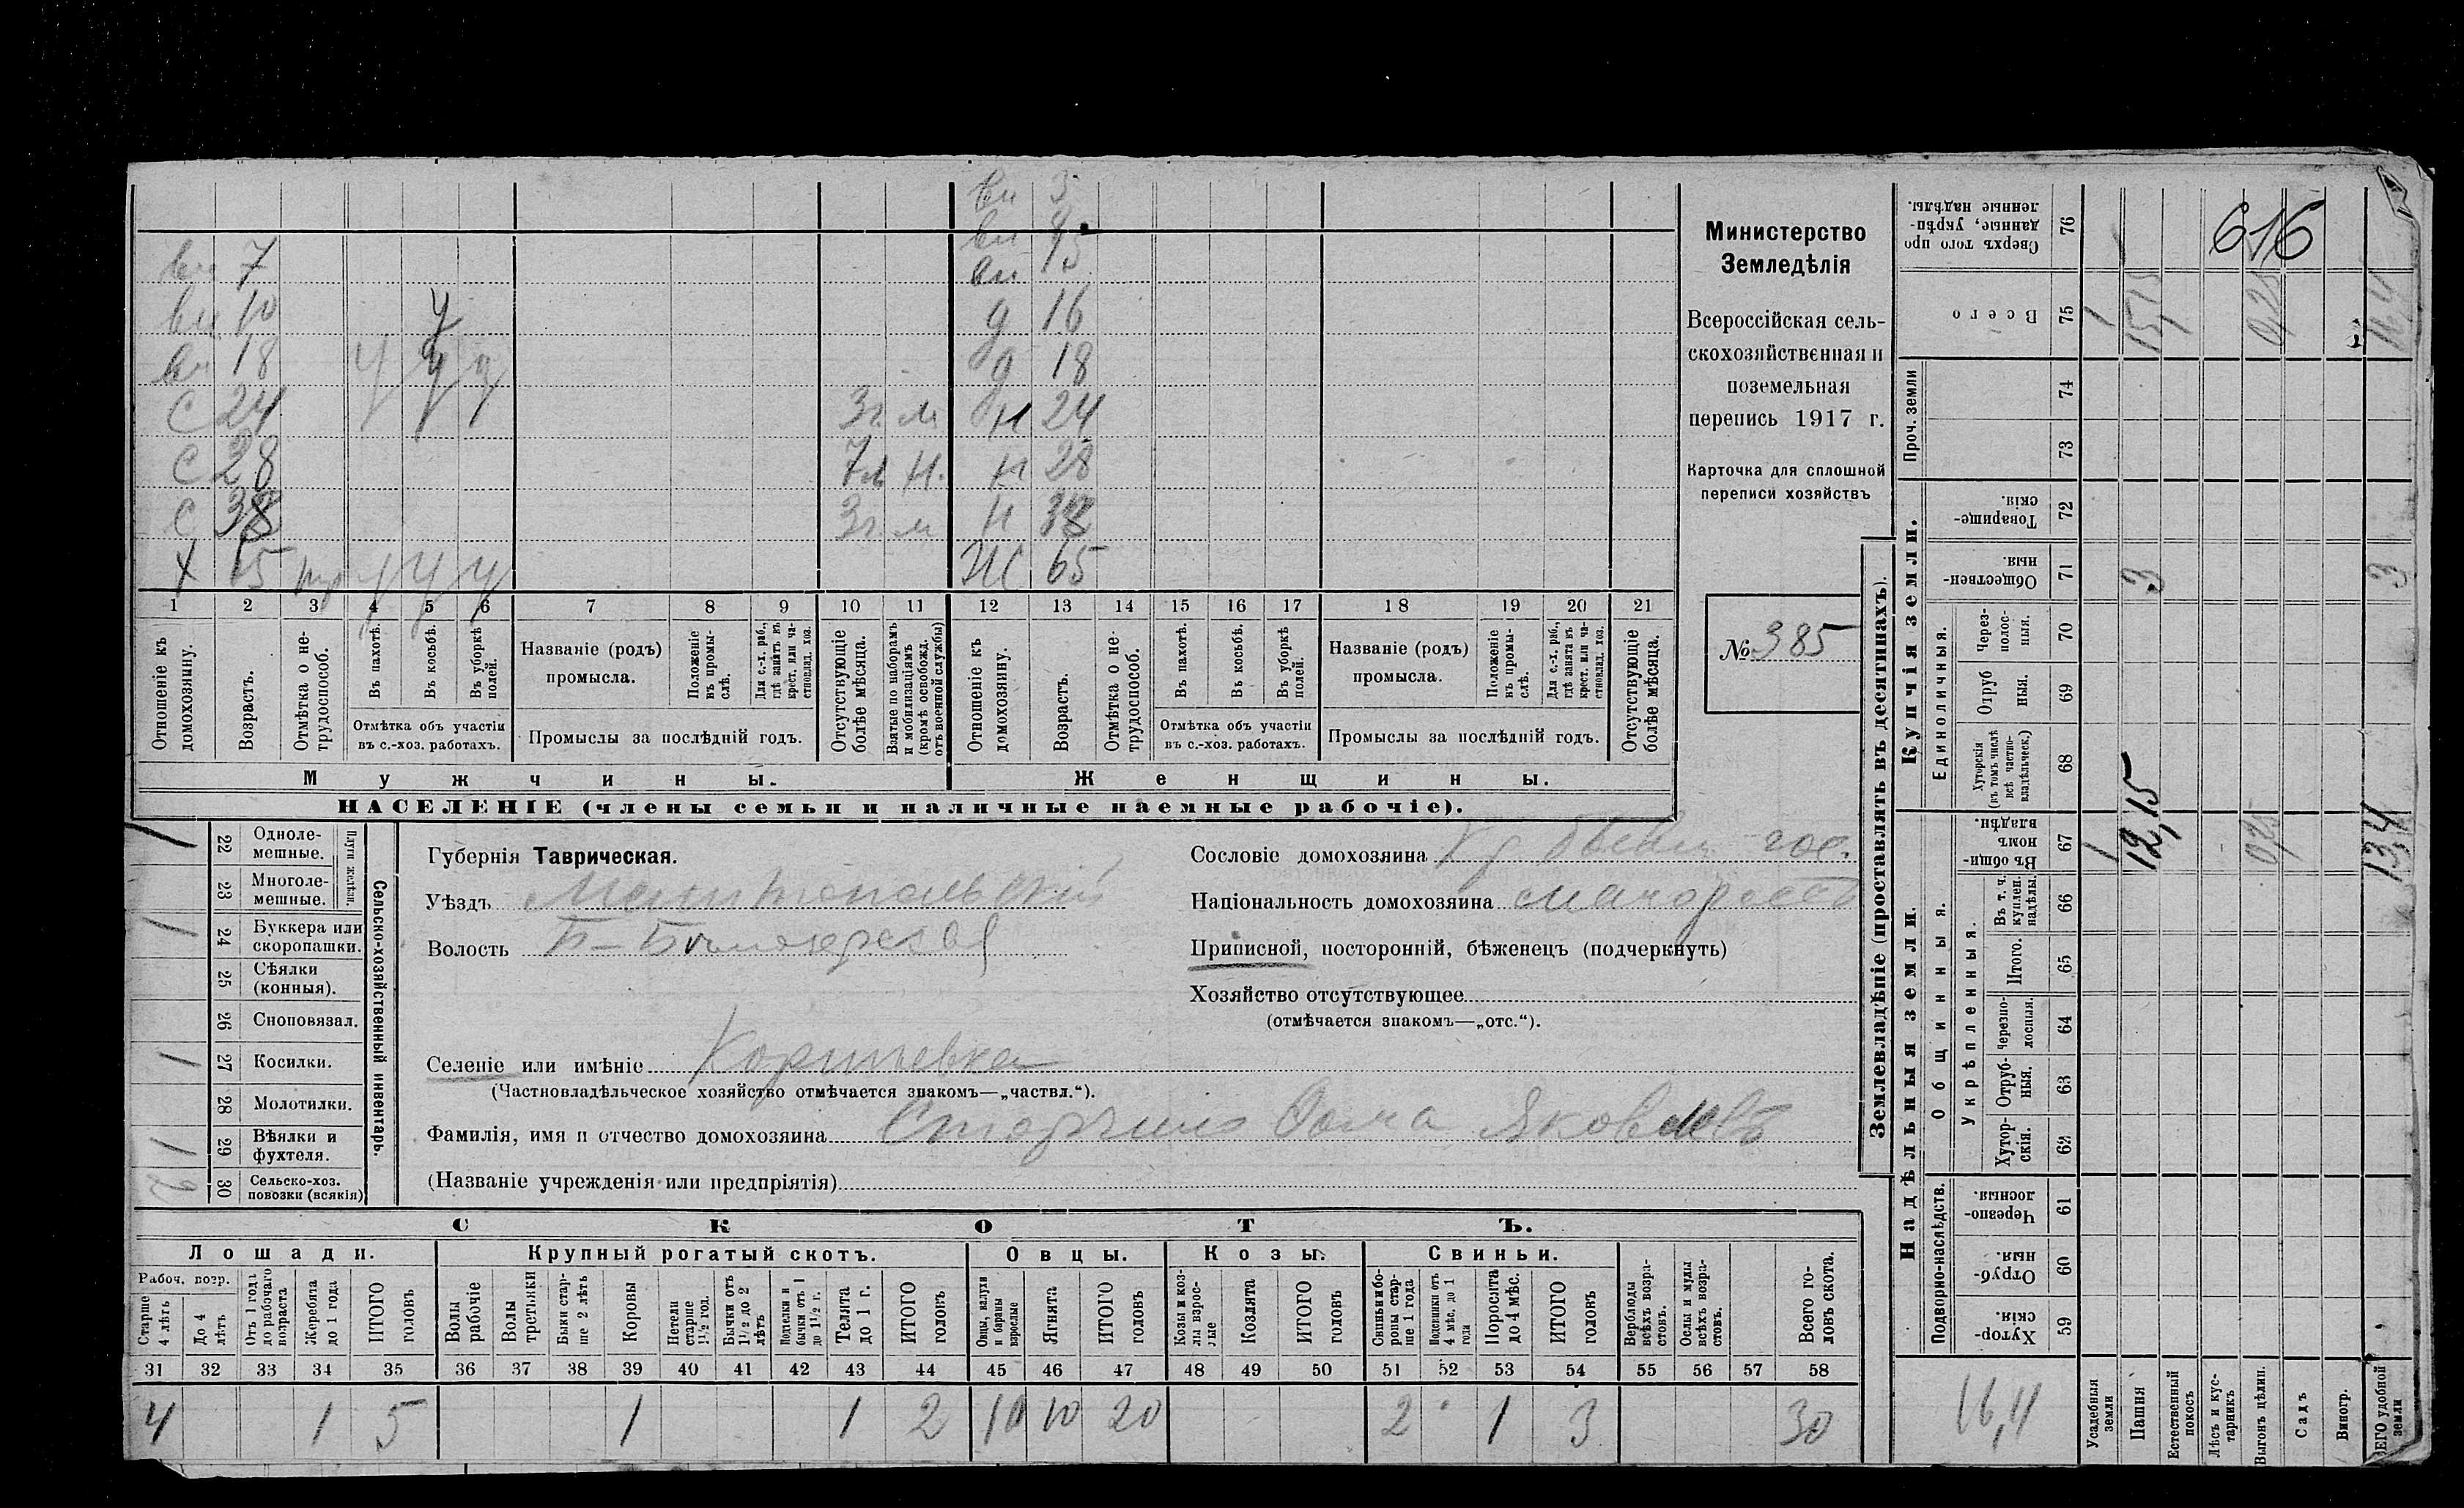 вн 3
вн 4
вн 7 вн 15
вн 10 у д 16
вн 18 у у у д 18
с 24 3г. м н 24
с 28 7м н. н 28
с 38 3г. м н 38
х 65 у у у Ж 65
1 2 3 4 5 6 7 8 9 10 11 12 13 14 15 16 17 18 19 20 21
Отношеніе къ домохозяину.
Возрастъ.
Отмѣтка о нетрудоспособ.
Въ пахотѣ.
Въ косьбѣ.
Въ уборкѣ полей.
Отмѣтка объ участіи
въ с.-хоз. работахъ.
Названіе (родъ)
промысла.
Положеніе въ промыслѣ.
Для с.-х. раб., гдѣ занятъ въ крест. или частновлад. хоз.
Промыслы за послѣдній годъ.
Отсутствующіе болѣе мѣсяца.
Взятые по наборамъ и мобилизаціямъ (кромѣ освобожд. отъ военной службы)
Отношеніе къ домохозяину.
Возрастъ.
Отмѣтка о нетрудоспособ.
Въ пахотѣ.
Въ косьбѣ.
Въ уборкѣ полей.
Отмѣтка объ участіи
въ с.-хоз. работахъ.
Названіе (родъ)
промысла.
Положеніе въ промыслѣ.
Для с.-х. раб., гдѣ занята въ крест. или частновлад. хоз.
Промыслы за послѣдній годъ.
Отсутствующіе болѣе мѣсяца.
Мужчины. Женщины.
НАСЕЛЕНІЕ (члены семьи и наличные наемные рабочіе).
Министерство
Земледѣлія
Всероссійская сель-
скохозяйственная и
поземельная
перепись 1917 г.
Карточка для сплошной
переписи хозяйствъ
№ 385
1 22 Одноле-
мешные.
23 Многоле-
мешные.
Плуги желѣзн.
1 24 Буккера или
скоропашки.
25 Сѣялки
(конныя).
26 Сноповязал.
1 27 Косилки.
28 Молотилки.
1 29 Вѣялки и
фухтеля.
2 30 Сельско-хоз.
повозки (всякія)
Сельско-хозяйственный инвентарь.
Губернія Таврическая.
Уѣздъ Мелитопольскій
Волость Б-Бѣлозерская
Селеніе или имѣніе
(Частновладѣльческое хозяйство отмѣчается знакомъ—„частвл.“).
Фамилія, имя и отчество домохозяина Фома Яковлевъ
(Названіе учрежденія или предпріятія)
Сословіе домохозяина Кр. бывш гос.
Національность домохозяина малороссъ
Приписной, посторонній, бѣженецъ (подчеркнуть)
Хозяйство отсутствующее
(отмѣчается знакомъ—„отс.“).
СКОТЪ.
Лошади. Крупный рогатый скотъ. Овцы. Козы. Свиньи.
Рабоч. возр.
Старше 4 лѣтъ
До 4 лѣтъ
Отъ 1 года до рабочаго возраста
Жеребята до 1 года
ИТОГО головъ
Волы рабочіе
Волы третьяки
Быки старше 2 лѣтъ
Коровы
Нетели старше 1½ год.
Бычки отъ 1½ до 2 лѣтъ
Подтелки и бычки отъ 1 до 1½ г.
Телята до 1 г.
ИТОГО головъ
Овцы, валухи и бараны взрослые
Ягнята
ИТОГО головъ
Козы и козлы взрослые
Козлята
ИТОГО головъ
Свиньи и боровы старше 1 года
Подсвинки отъ 4 мѣс. до 1 года
Поросята до 4 мѣс.
ИТОГО головъ
Верблюды всѣхъ возрастовъ.
Ослы и мулы всѣхъ возрастовъ.
Всего головъ скота.
31 32 33 34 35 36 37 38 39 40 41 42 43 44 45 46 47 48 49 50 51 52 53 54 55 56 57 58
4 1 5 1 1 2 10 10 20 2 1 3 30
Землевладѣніе (проставлять въ десятинахъ).
Купчія земли.
Надѣльныя земли.
Сверхъ того проданные, укрѣпленные надѣлы. 76 616
Всего 75 1 15,15 0,25 16,4
Проч. земли
74
73
Товарищескія. 72
Общественныя. 71 3 3
Единоличныя.
Черезполосныя. 70
Отрубныя. 69
Хуторскія (въ томъ числѣ всѣ частновладѣльческ.) 68
Общинныя.
Въ общинномъ владѣн. 67 1 12,15 0,25 13,4
Укрѣпленныя.
Въ т. ч. куплен. надѣлы 66
Итого. 65
Черезполосныя. 64
Отрубныя. 63
Хуторскія. 62
Подворно-наслѣдств.
Черезполосныя. 61
Отрубныя. 60
Хуторскія. 59
16,4
Усадебныя земли
Пашня
Естественный покосъ
Лѣсъ и кустарникъ
Выгонъ цѣлин.
Садъ
Виногр.
ВСЕГО удобной земли